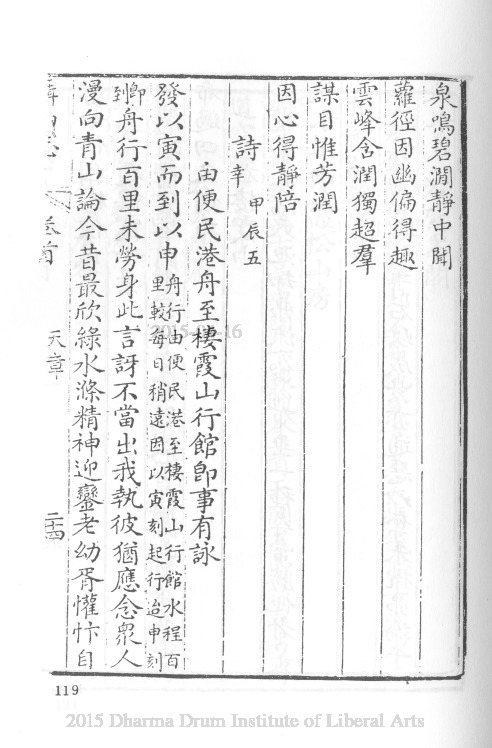 泉鳴碧澗靜中聞
蘿徑因幽偏得趣
雲峰含潤獨超羣
謀目惟芳潤
因心得靜陪
詩 甲辰五幸
由便民港舟至棲霞山行館卽事有詠
發以寅而到以申 舟行由便民港至棲霞山行館水程百里較每日稍遠因以寅刻起行迨申刻
卽到 舟行百里未勞身此言訝不當出我執彼猶應念衆人
漫向青山論今昔最欣綠水滌精神迎鑾老幼胥懽忭自
卷首 天章 二四
2015-
-16
119
2015 Dharma Drum Institute of Liberal Arts